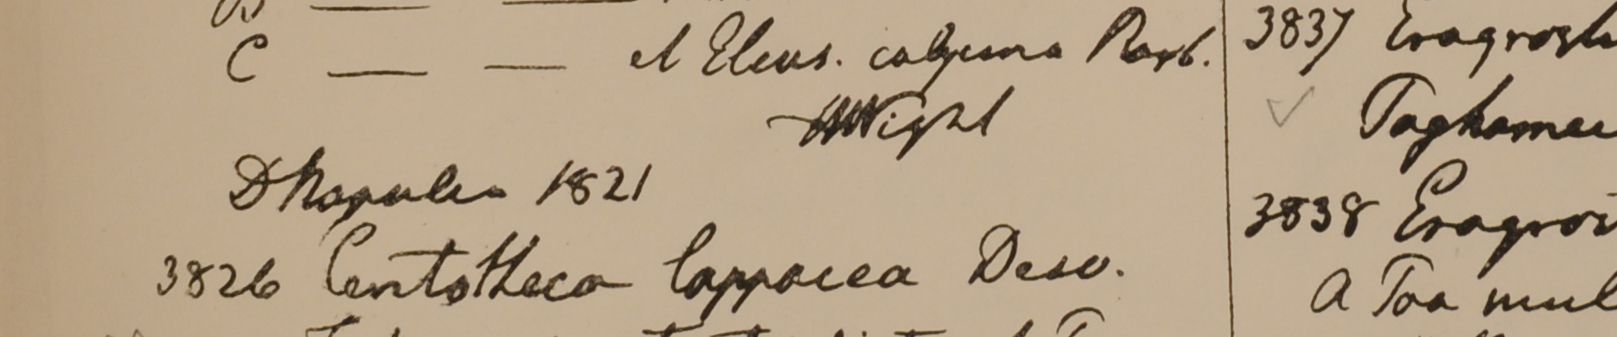 C — — et Eleus. calycina Roxb.
HWight
D Napalia 1821
3826 Centotheca lappacea Desv.
3837 Eragrostis
Taghamea
3838 Eragros
A Poa mul